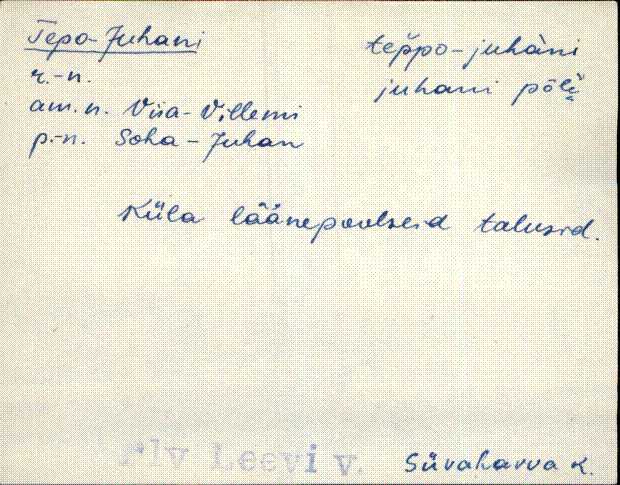 Tepo-Juhani teppo-juhàni
r.-n. juhani põlï
am.n. Viia-Villemi
p.-n. Soha-Juhan
Küla läänepoolseid talusid.
Plv Leevi v. Süvahavva k.